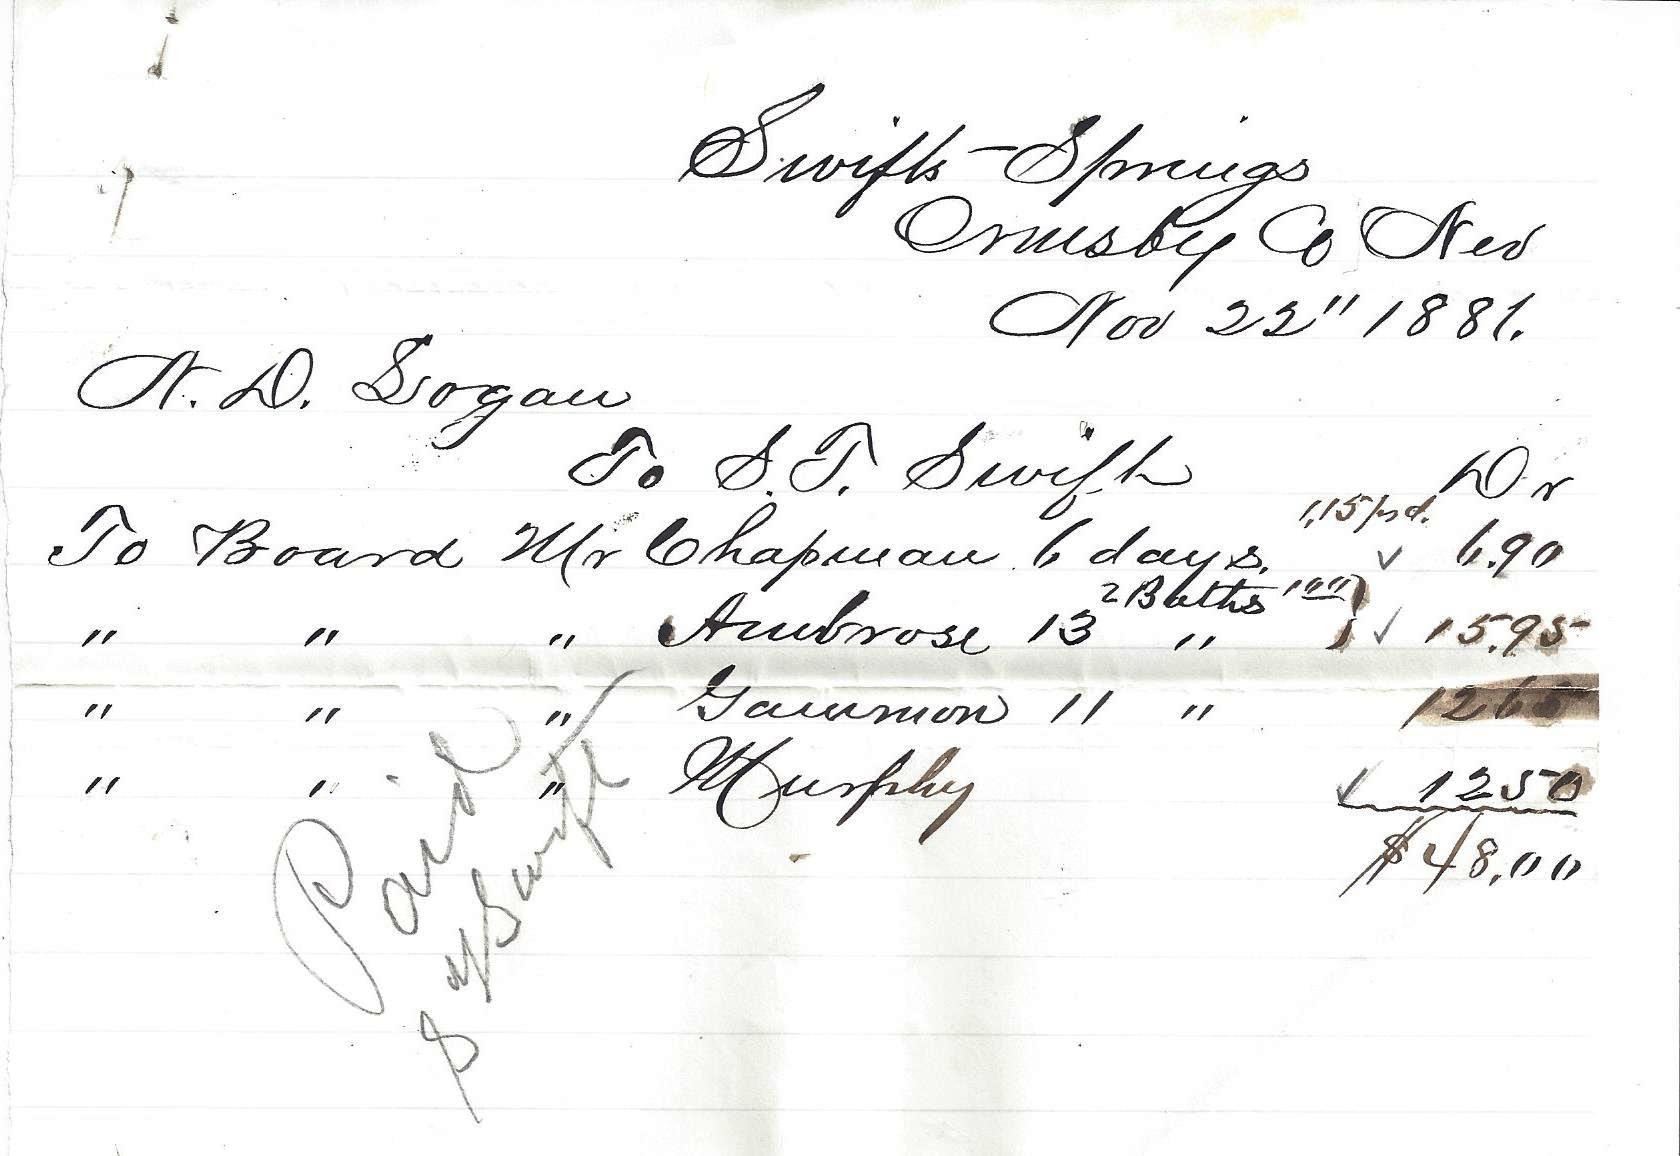 Swifts - Springs
Ormsby Co Nev
Nov 22" 1881.
N. D. Logan
To S. T. Swift Dr
1,15 prd.
To Board Mr Chapman 6 days. ✓ 6.90
2 Baths 1 00
" " " Ambrose 13 " ✓ 15.95
" " " Gammon 11 " 12 65
" " " Murphy ✓ 12 50
$ 48.00
Paid
S T Swift